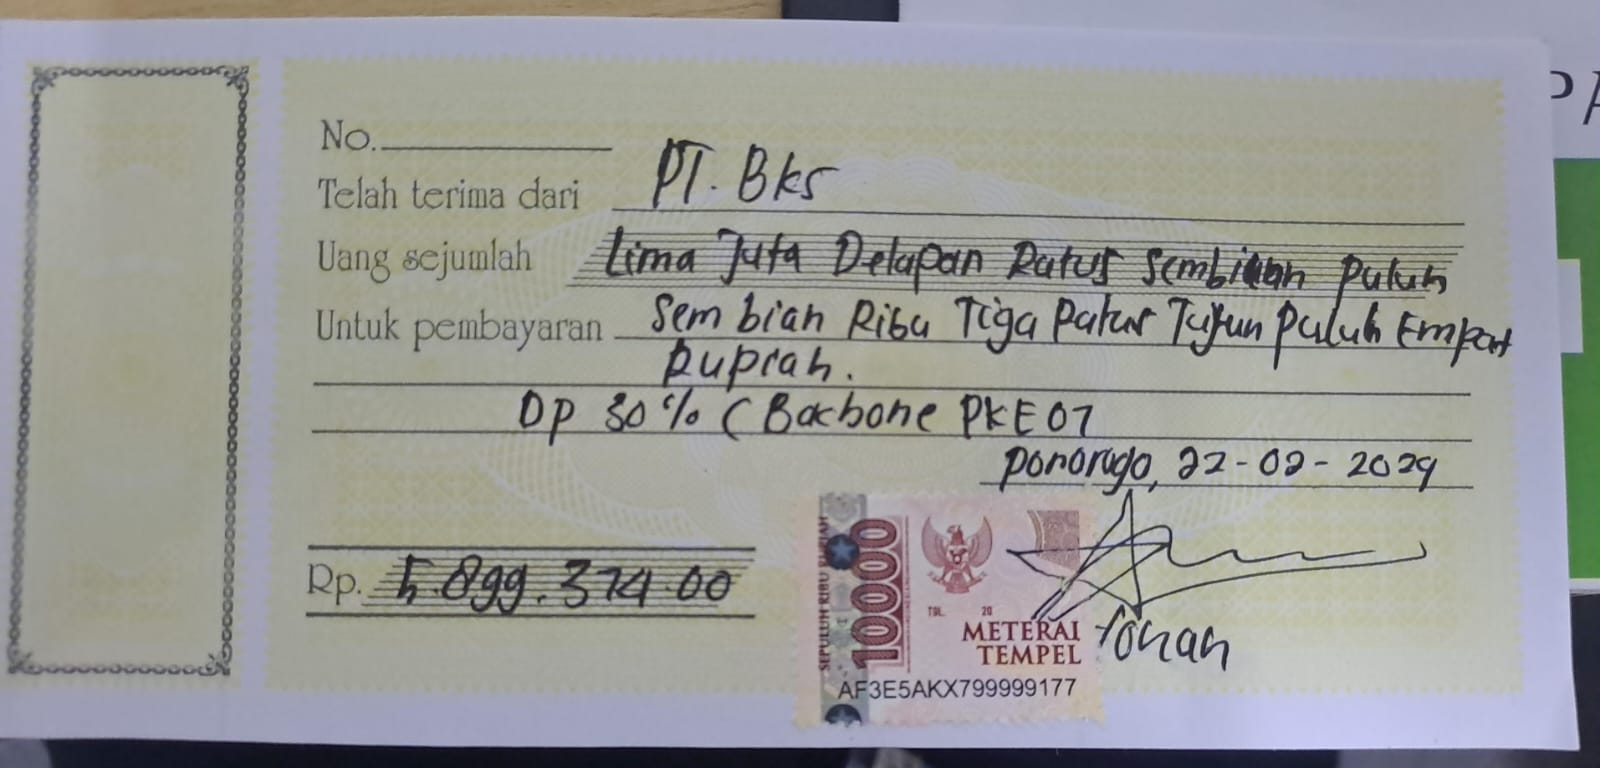 No.
Telah terima dari PT. Bks
Uang sejumlah Lima Juta Delapan Ratus Sembilan Puluh
Untuk pembayaran Sembian Ribu Tiga Ratus Tujuh Puluh Empat
Rupiah.
DP 30% ( Bacbone PKE07
Ponorogo, 22-02-2024
Rp. 5.899.374.00
SEPULUH RIBU RUPIAH
10000
TGL. 20
METERAI
TEMPEL
AF3E5AKX799999177
Yohan
PA